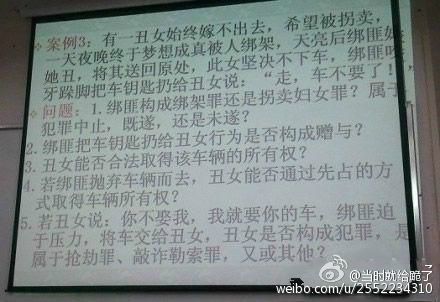 案例3：有一丑女始终嫁不出去，希望被拐卖，
一天夜晚终于梦想成真被人绑架，天亮后绑匪嫌
她丑，将其送回原处，此女坚决不下车，绑匪咬
牙跺脚把车钥匙扔给丑女说：“走，车不要了！”
问题：1.绑匪构成绑架罪还是拐卖妇女罪？属于
犯罪中止，既遂，还是未遂？
2. 绑匪把车钥匙扔给丑女行为是否构成赠与？
3. 丑女能否合法取得该车辆的所有权？
4. 若绑匪抛弃车辆而去，丑女能否通过先占的方
式取得车辆所有权？
5. 若丑女说：你不娶我，我就要你的车，绑匪迫
于压力，将车交给丑女，丑女是否构成犯罪，是
属于抢劫罪、敲诈勒索罪，又或其他？
7
@当时就给跪了
weibo.com/u/2552234310